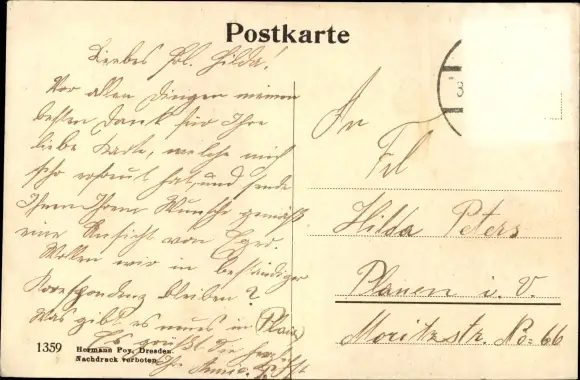 Postkarte
Liebes Frl. Hilda!
Vor allen Dingen meinen
besten Dank für Ihre
liebe Karte, welche mich
sehr erfreut hat, und sende
Ihnen Ihrem Wunsche gemäß
eine Ansicht von Eger.
Wollen wir in beständiger
Korrespondenz bleiben?
Was gibt es neues in Plauen
Es grüßt Sie herzlichst
Ihr
An
Frl
Hilda Peters
Plauen i. V.
Moritzstr. No 66
1359 Hermann Poy, Dresden.
Nachdruck verboten.